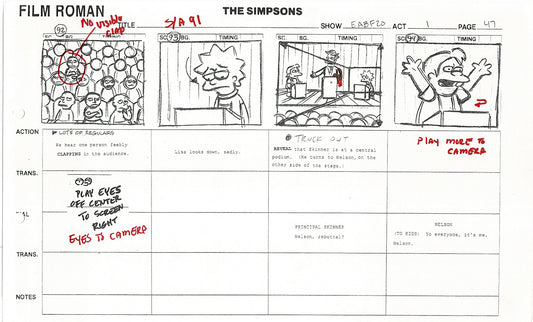 FILM ROMAN
THE SIMPSONS
TITLE
SHOW EABF20 ACT 1 PAGE 47
No visible clap
S/A 91
92
SC. 93 BG. TIMING
SC. BG. TIMING
SC. 94 BG. TIMING
ACTION
LOTS OF REGULARS
We hear one person feebly
CLAPPING in the audience.
Lisa looks down, sadly.
TRUCK OUT
REVEAL that Skinner is at a central
podium. (He turns to Nelson, on the
other side of the stage.)
PLAY MORE TO
CAMERA
TRANS.
PLAY EYES
OFF CENTER
TO SCREEN
RIGHT
EYES TO CAMERA
PRINCIPAL SKINNER
Nelson, rebuttal?
NELSON
(TO KIDS) Yo everyone, it's me,
Nelson.
TRANS.
NOTES